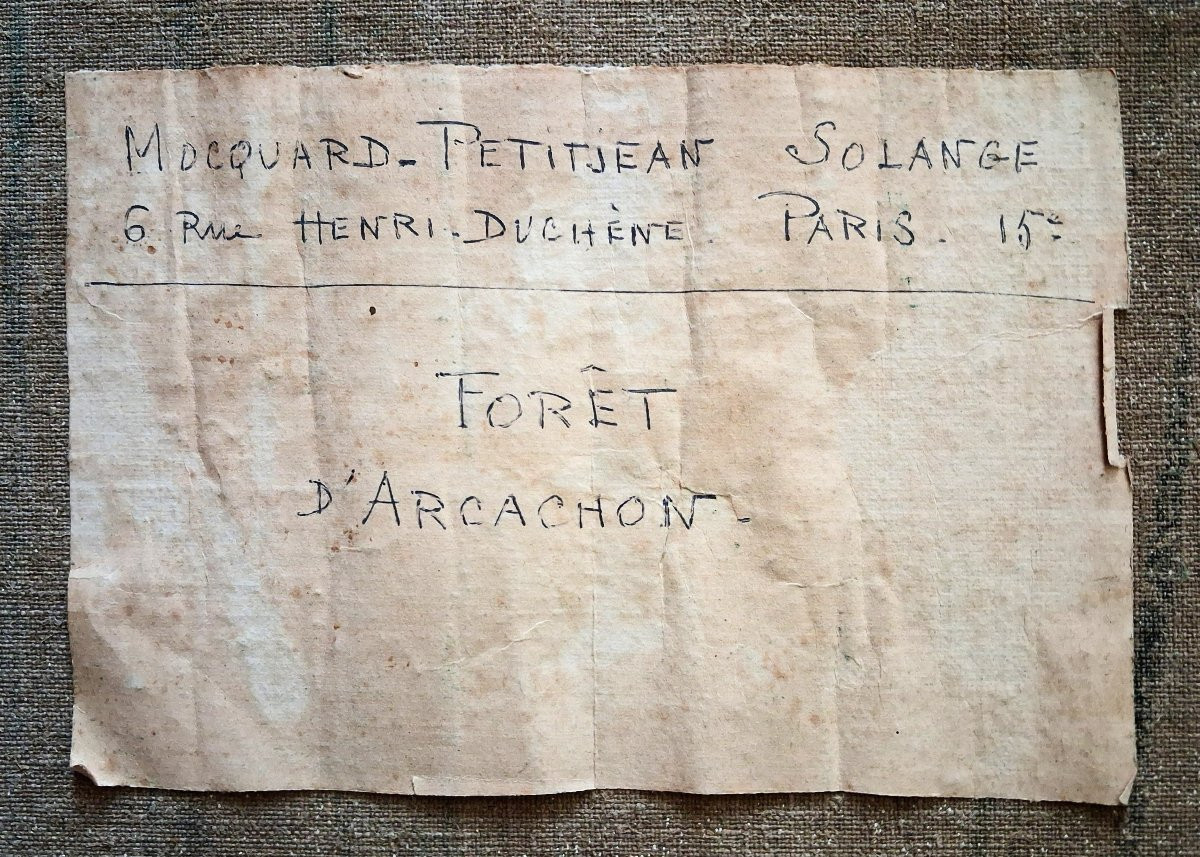 MOCQUARD-PETITJEAN SOLANGE
6 Rue HENRI-DUCHÈNE. PARIS. 15e
FORÊT
D'ARCACHON-